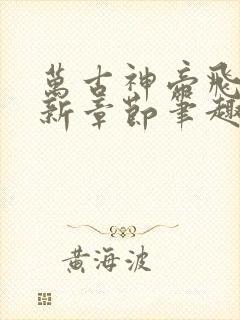 萬古神帝飛
新章節筆趣
黃海波